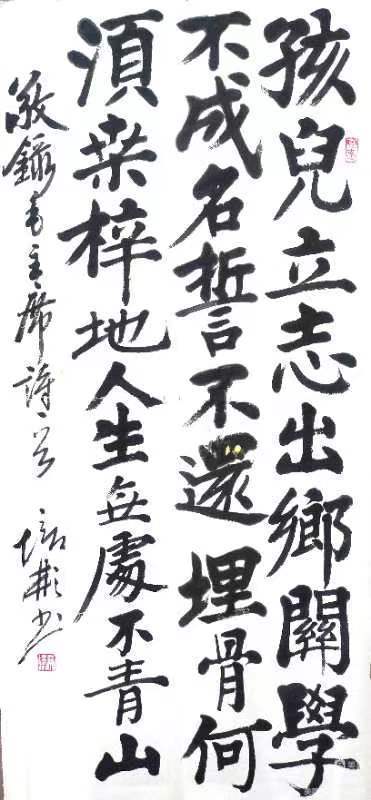 孩兒立志出鄉關學
不成名誓不還埋骨何
須桑梓地人生無處不青山
敬錄毛主席詩一首 培彬书